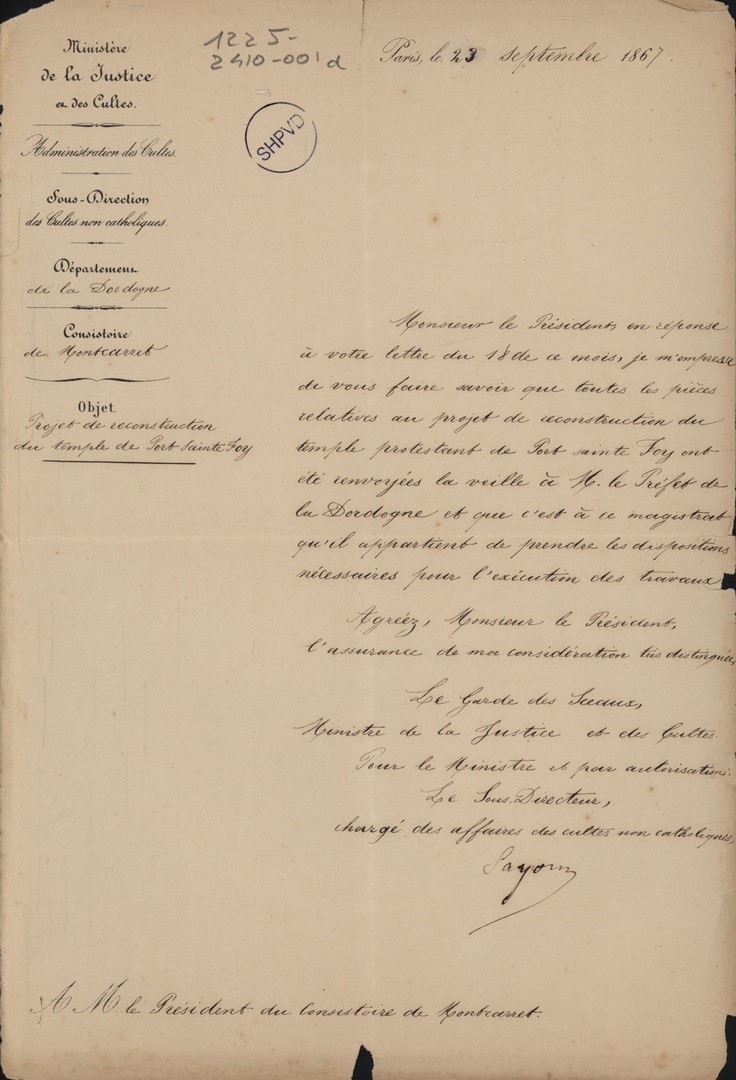 Ministère
de la Justice
et des Cultes.
Administration des Cultes.
Sous-Direction
des Cultes non catholiques.
Département
de la Dordogne
Consistoire
de Montcarret
Objet.
Projet de reconstruction
du temple de Port Sainte Foy
1225-
2410-001 d
SHPVD
Paris, le 23 septembre 1867.
Monsieur le Président, en réponse
à votre lettre du 18 de ce mois, je m'empresse
de vous faire savoir que toutes les pièces
relatives au projet de reconstruction du
temple protestant de Port sainte Foy ont
été renvoyées la veille à M. le Préfet de
la Dordogne et que c'est à ce magistrat
qu'il appartient de prendre les dispositions
nécessaires pour l'exécution des travaux
Agréez, Monsieur le Président,
l'assurance de ma considération très distinguée,
Le Garde des Sceaux,
Ministre de la Justice et des Cultes.
Pour le Ministre et par autorisation:
Le Sous-Directeur,
chargé des affaires des cultes non catholiques,
Sayou
A M. le Président du Consistoire de Montcarret.